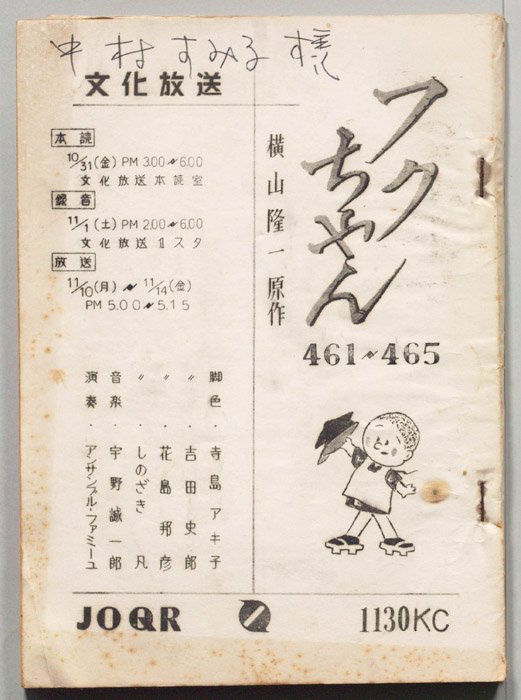 中村すみ子様
文化放送
フクちやん
横山隆一原作
461~465
本読
10/31(金) PM 3.00~6.00
文化放送本読室
録音
11/1(土) PM 2.00~6.00
文化放送1スタ
放送
11/10(月)~11/14(金)
PM 5.00~5.15
脚色・寺島アキ子
〃・吉田史郎
〃・花島邦彦
〃・しのざき凡
音楽・宇野誠一郎
演奏・アンサンブル・ファミーユ
JOQR
1130KC